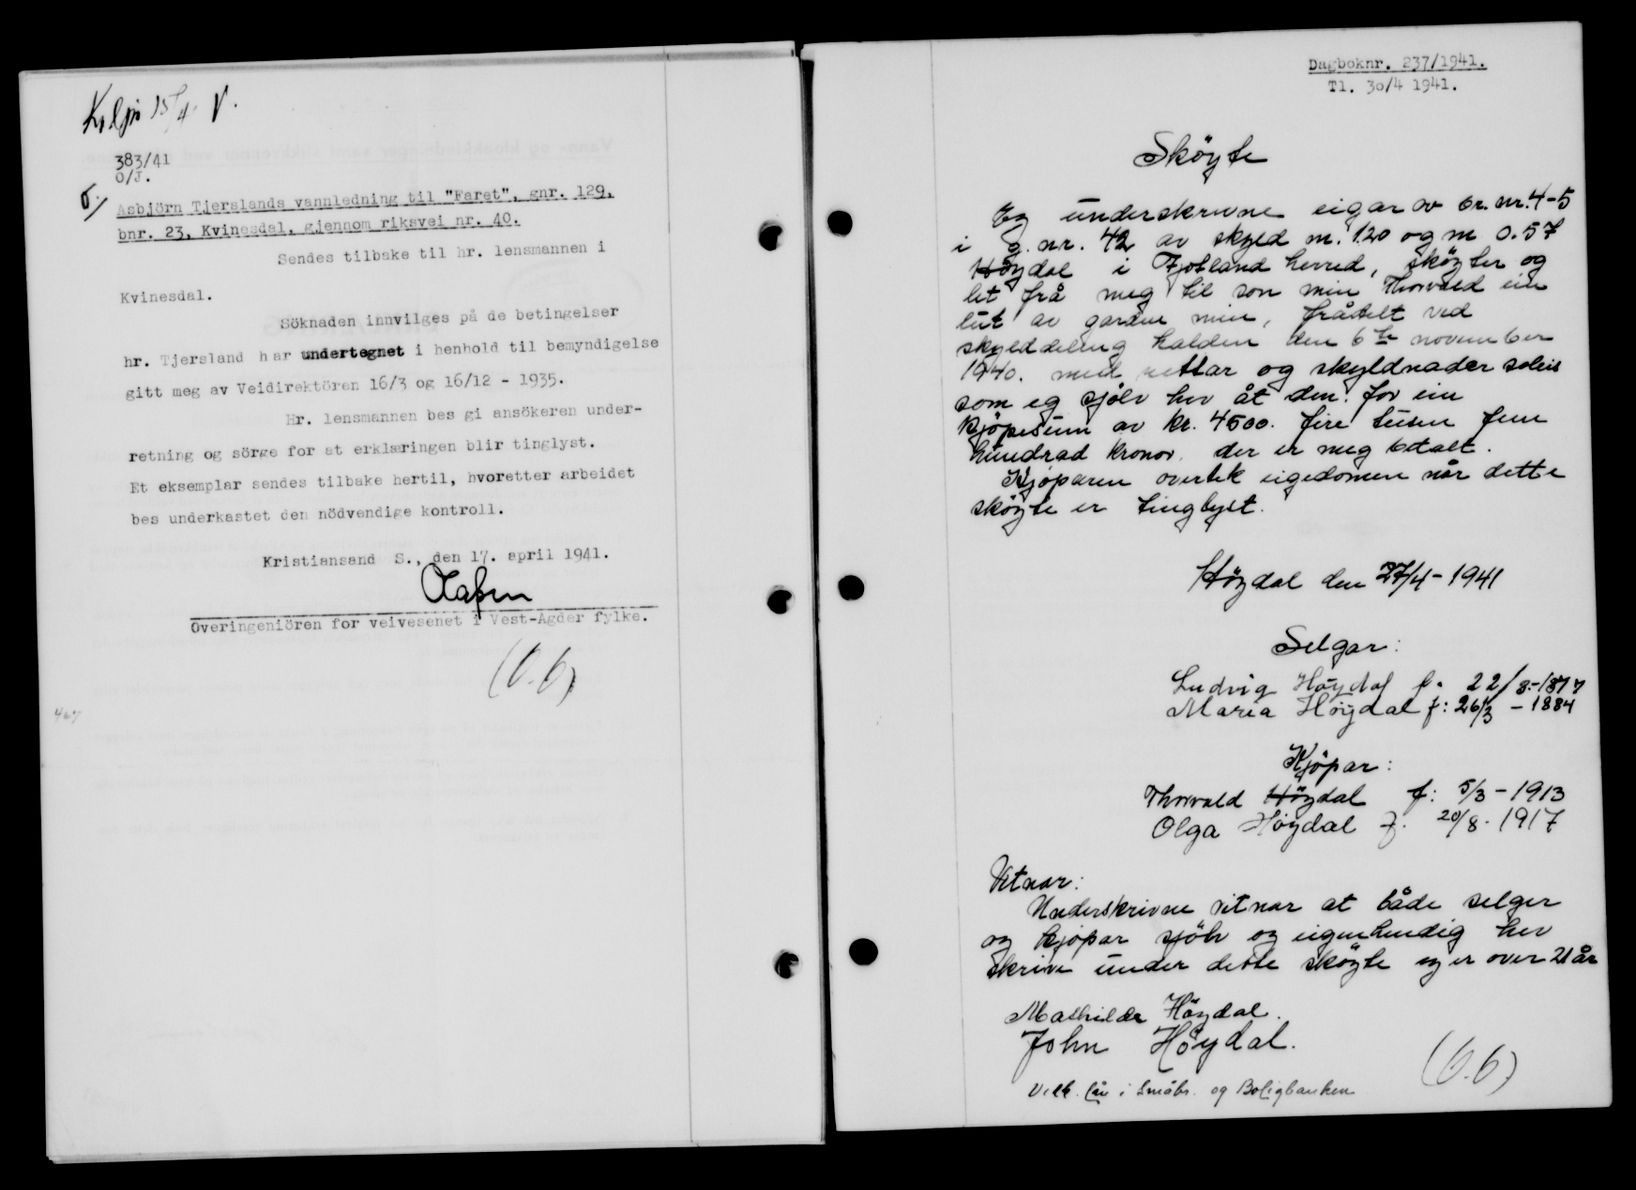 15/4 V.
383/41
O/J.
Asbjörn Tjerslands vannledning til "Faret", gnr. 129,
bnr. 23, Kvinesdal, gjennom riksvei nr. 40.
Sendes tilbake til hr. lensmannen i
Kvinesdal.
Söknaden innvilges på de betingelser
hr. Tjersland har undertegnet i henhold til bemyndigelse
gitt meg av Veidirektören 16/3 og 16/12 - 1935.
Hr. lensmannen bes gi ansökeren under-
retning og sörge for at erklæringen blir tinglyst.
Et eksemplar sendes tilbake hertil, hvoretter arbeidet
bes underkastet den nödvendige kontroll.
Kristiansand S., den 17. april 1941.
Overingeniören for veivesenet i Vest-Agder fylke.
Dagboknr. 237/1941.
Tl. 30/4 1941.
Sköyte
Eg underskrivne eigar av br. nr. 4-5
i g. nr. 42 av skyld m. 1.20 og m 0.57
Höydal i Fjotland herred, sköyter og
let frå meg til son min Thorvald ein
lut av garden min, frådelt ved
skylddeling halden den 6te november
1940. med rettar og skyldnader soleis
som eg sjölv hev åt den. for ein
kjöpesum av kr. 4500. fire tusen fem
hundrad kronor. der er meg betalt.
Kjöparen overtek eigedomen når dette
sköyte er tinglyst.
Höydal den 27/4 - 1941
Selgar:
Ludvig Höydal f. 22/8 - 1877
Maria Höydal f: 26/3 - 1884
Kjöpar:
Thorvald Höydal f: 5/3 - 1913
Olga Höydal f. 20/8 - 1917
Vitnar:
Underskrivne vitnar at både selger
og kjöpar sjölv og eigenhendig hev
skrive under dette sköyte og er over 21 år
Mathilde Höydal.
John Höydal.
Vilk. lån i Småbr. og Boligbanken